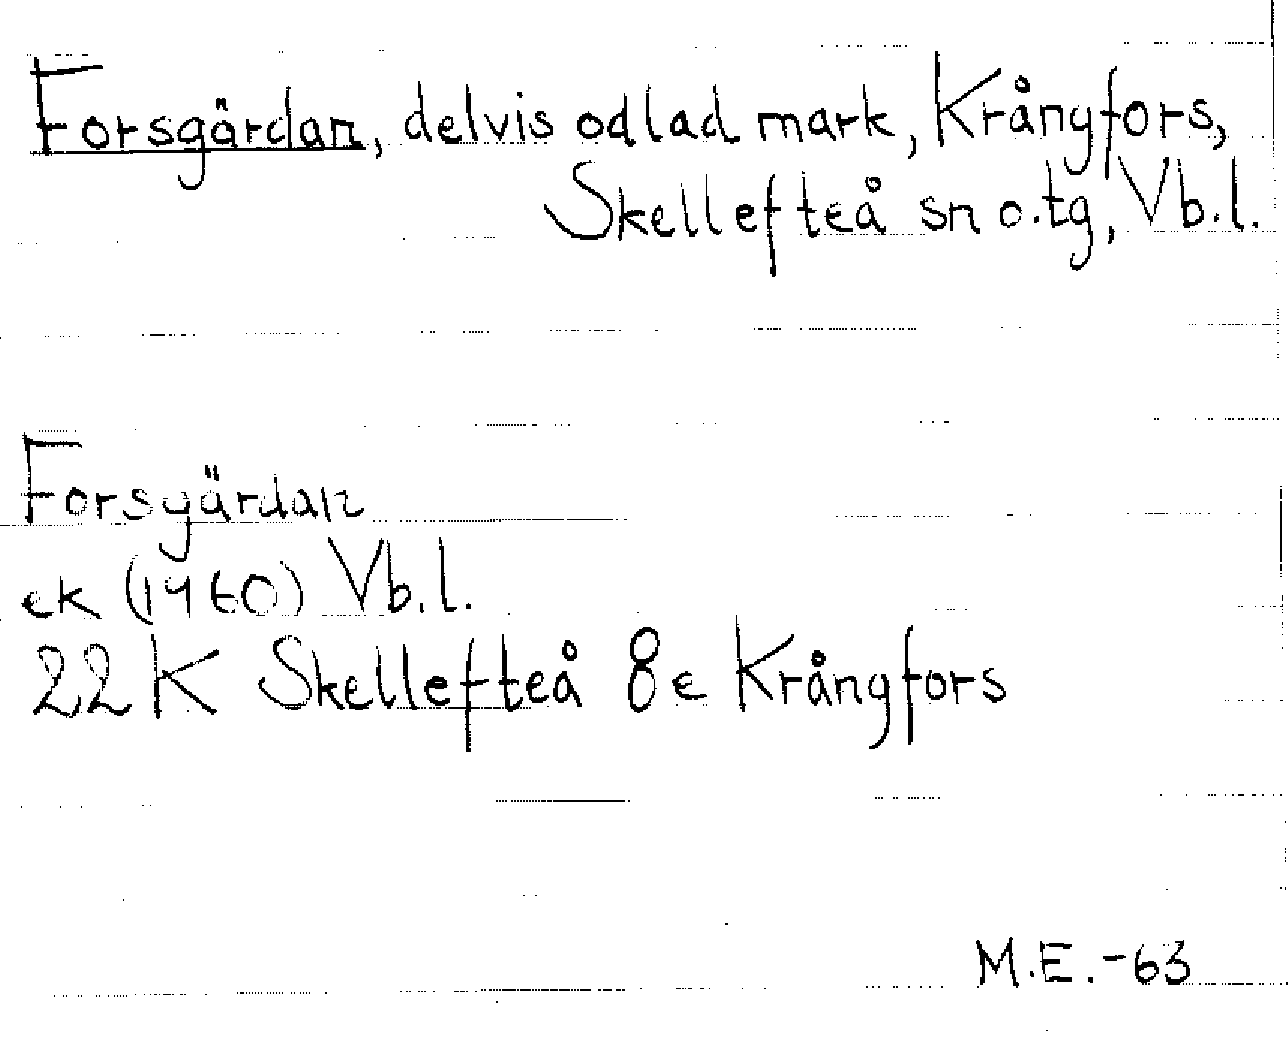 Forsgärdan, delvis odlad mark, Krångfors,
Skellefteå sn o.tg, Vb.l.
Forsgärdan
ek (1960) Vb.l.
22K Skellefteå 8e Krångfors
M.E.-63